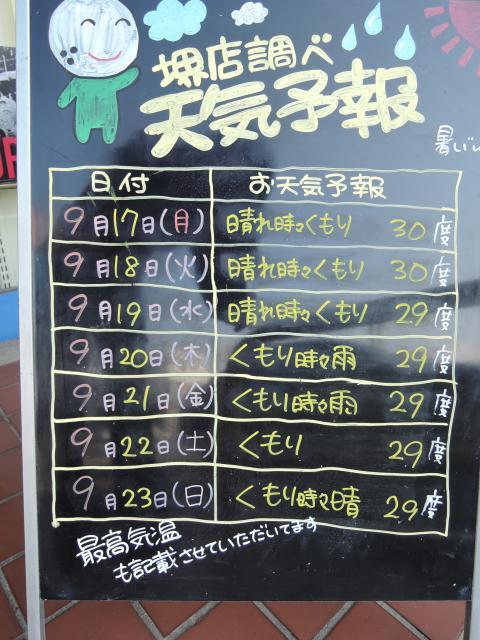 堺店調べ
天気予報
暑い
日付 お天気予報
9月17日(月) 晴れ時々くもり 30度
9月18日(火) 晴れ時々くもり 30度
9月19日(水) 晴れ時々くもり 29度
9月20日(木) くもり時々雨 29度
9月21日(金) くもり時々雨 29度
9月22日(土) くもり 29度
9月23日(日) くもり時々晴 29度
最高気温
も記載させていただいてます